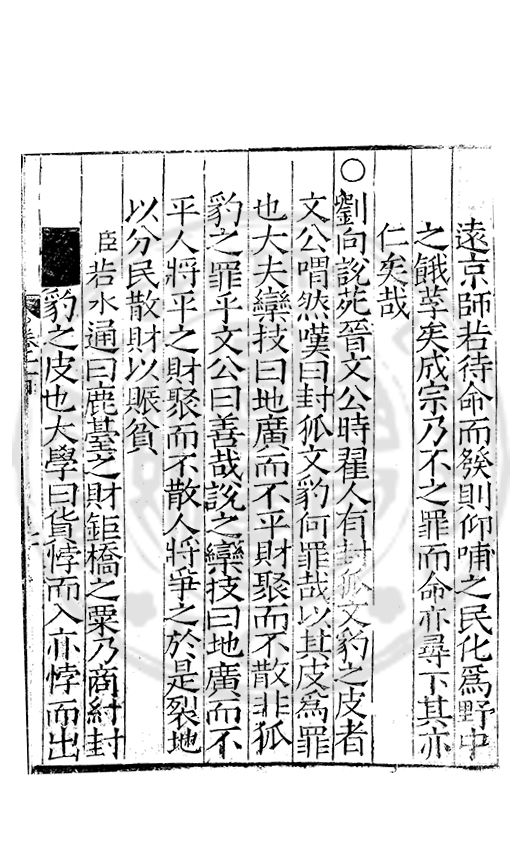 遠京師若待命而發則仰哺之民化爲野中
之餓莩矣成宗乃不之罪而命亦尋下其亦
仁矣哉
○劉向說苑晉文公時翟人有封狐文豹之皮者
文公喟然嘆曰封狐文豹何罪哉以其皮爲罪
也大夫欒技曰地廣而不平財聚而不散非狐
豹之罪乎文公曰善哉說之欒技曰地廣而不
平人將平之財聚而不散人將爭之於是裂地
以分民散財以賑貧
臣若水通曰鹿臺之財鉅橋之粟乃商紂封
豹之皮也大學曰貨悖而入亦悖而出